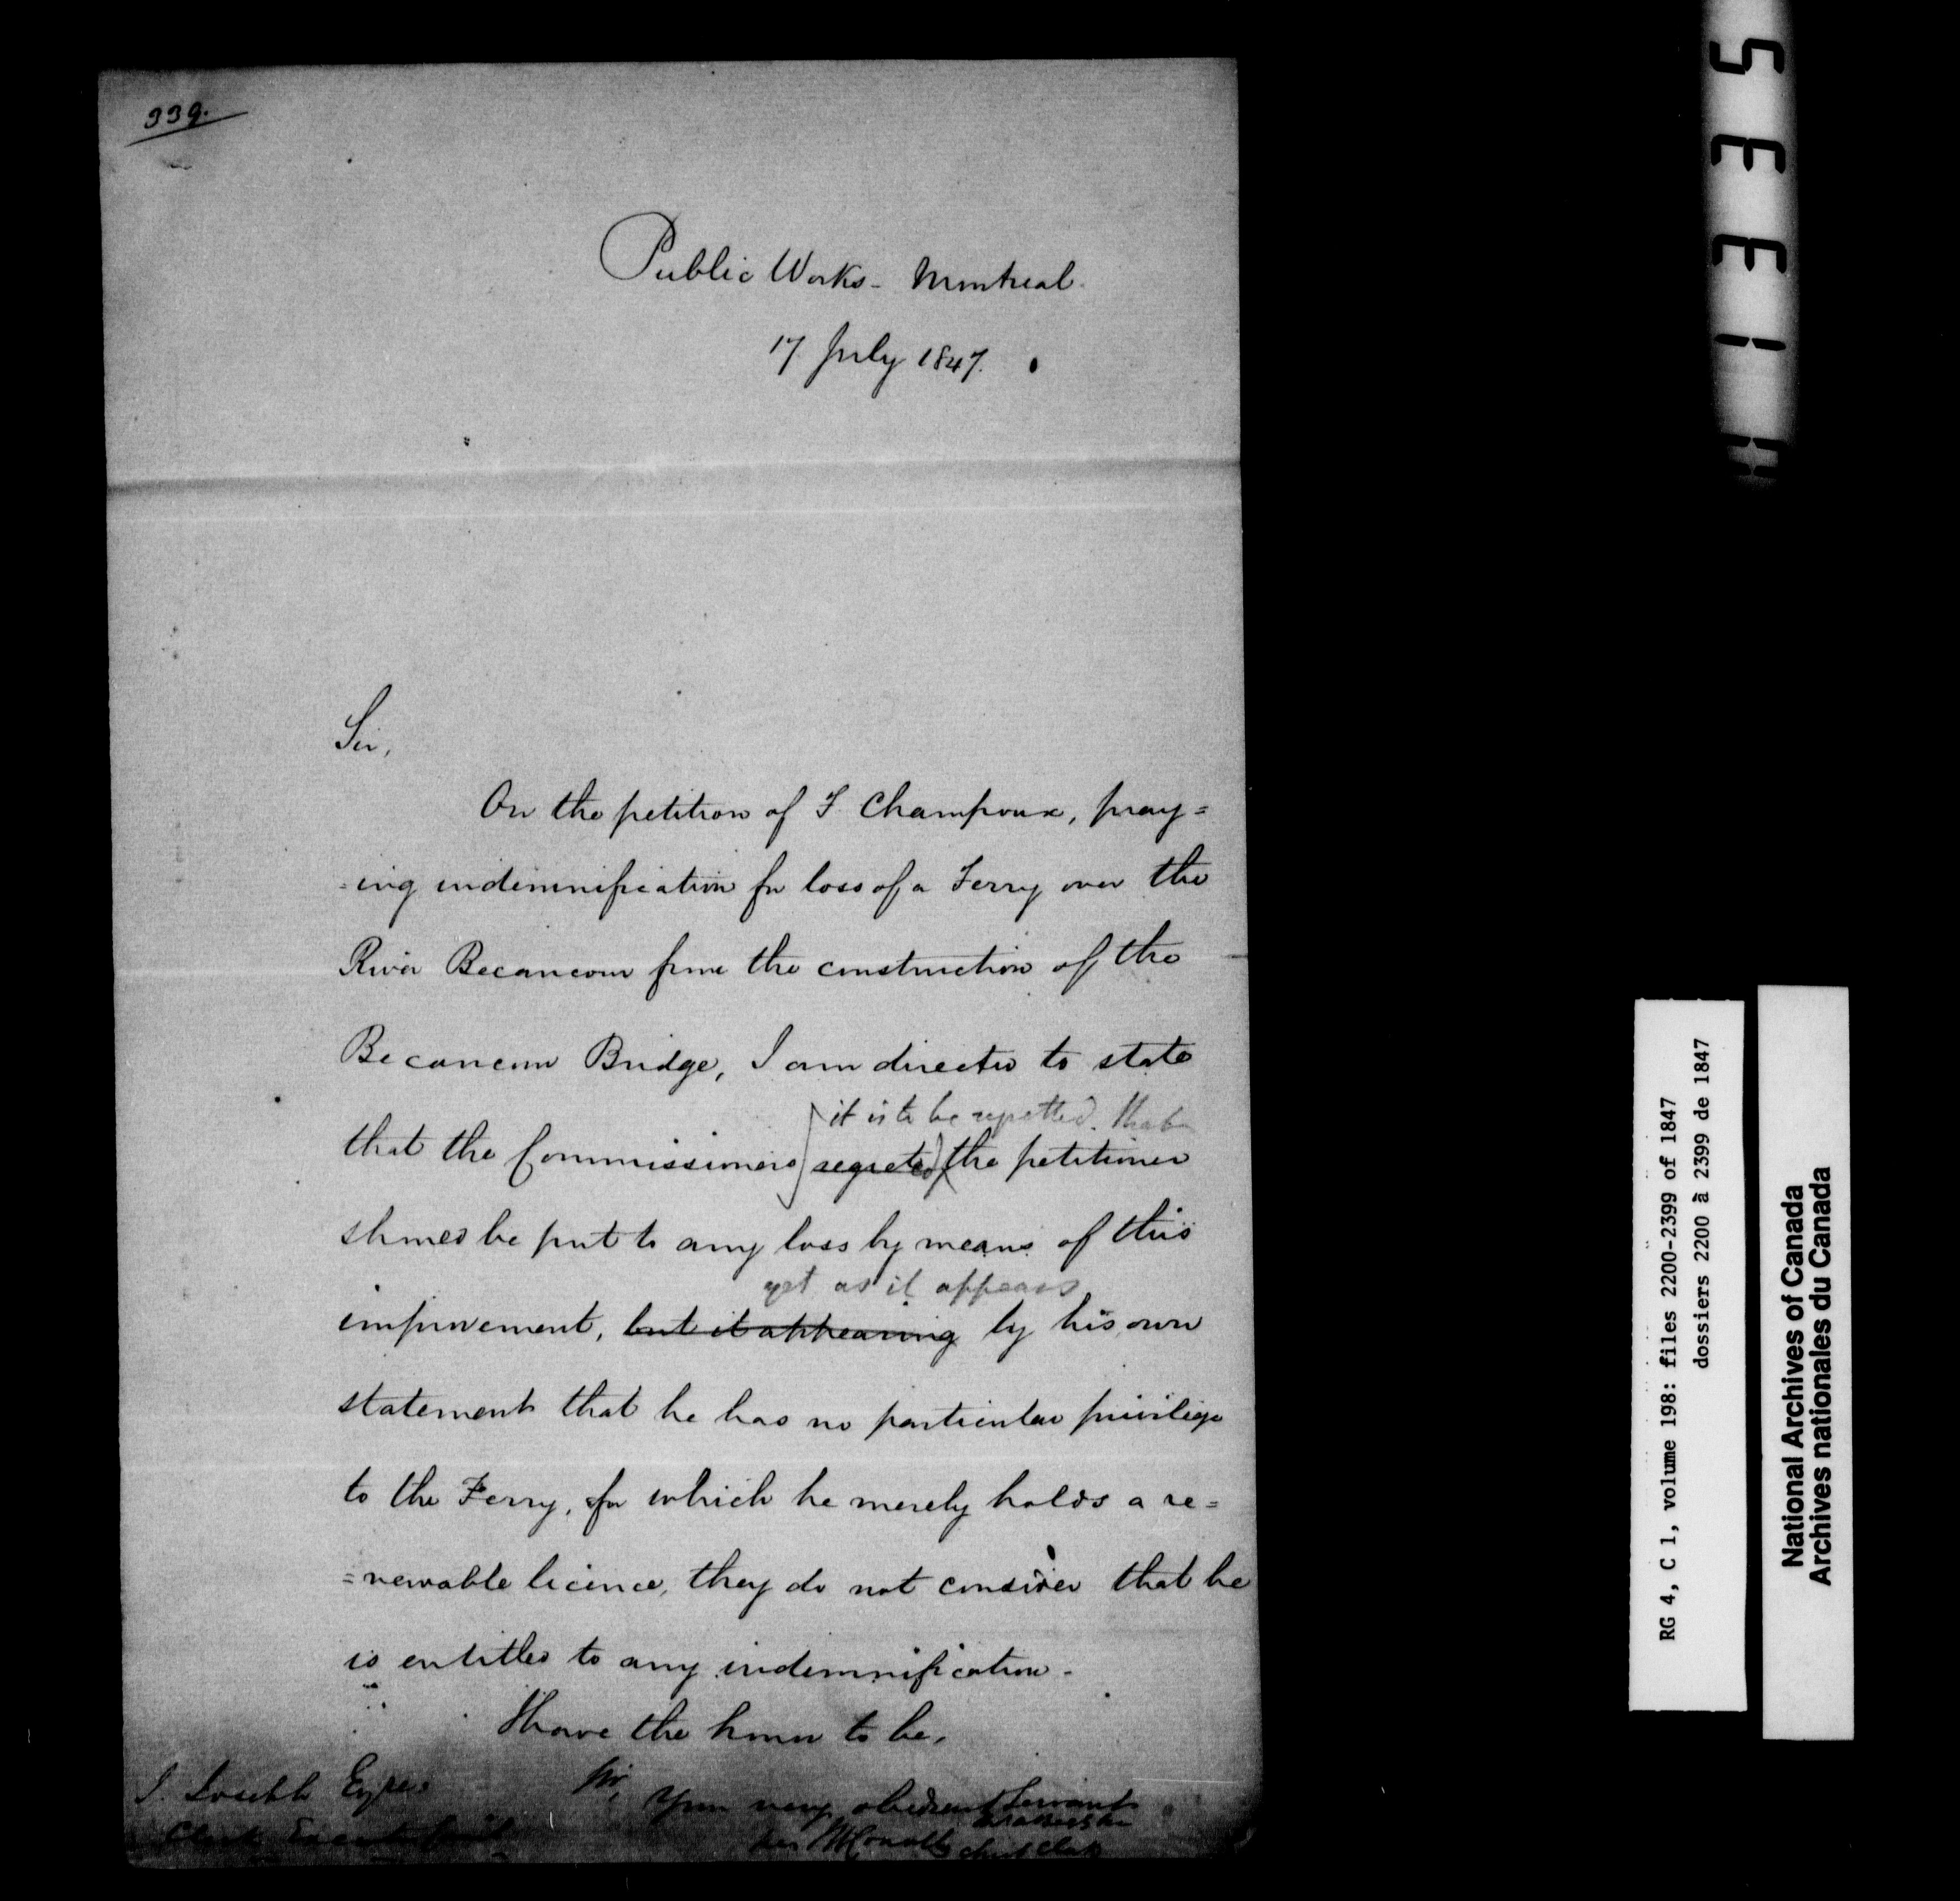 339.
Public Works - Montreal.
17 July 1847.
Sir,
On the petition of F Champoux, pray=
=ing indemnification for loss of a Ferry over the
River Becancour from the construction of the
Becancour Bridge, I am directed to state
it is to be regretted. that
that the Commissioners regrets the petitioner
should be put to any loss by means of this
yet as it appears
improvement, but it appearing by his own
statement that he has no particular privilege
to the Ferry, for which he merely holds a re=
=newable licence, they do not consider that he
is entitled to any indemnification -
I have the honor to be,
Sir,
Your very obedient Servant
J. Joseph Esqre.
Clerk Executive Council
Chief Clerk
RG 4, C 1, volume 198: files 2200-2399 of 1847
dossiers 2200 à 2399 de 1847
National Archives of Canada
Archives nationales du Canada
H 1335